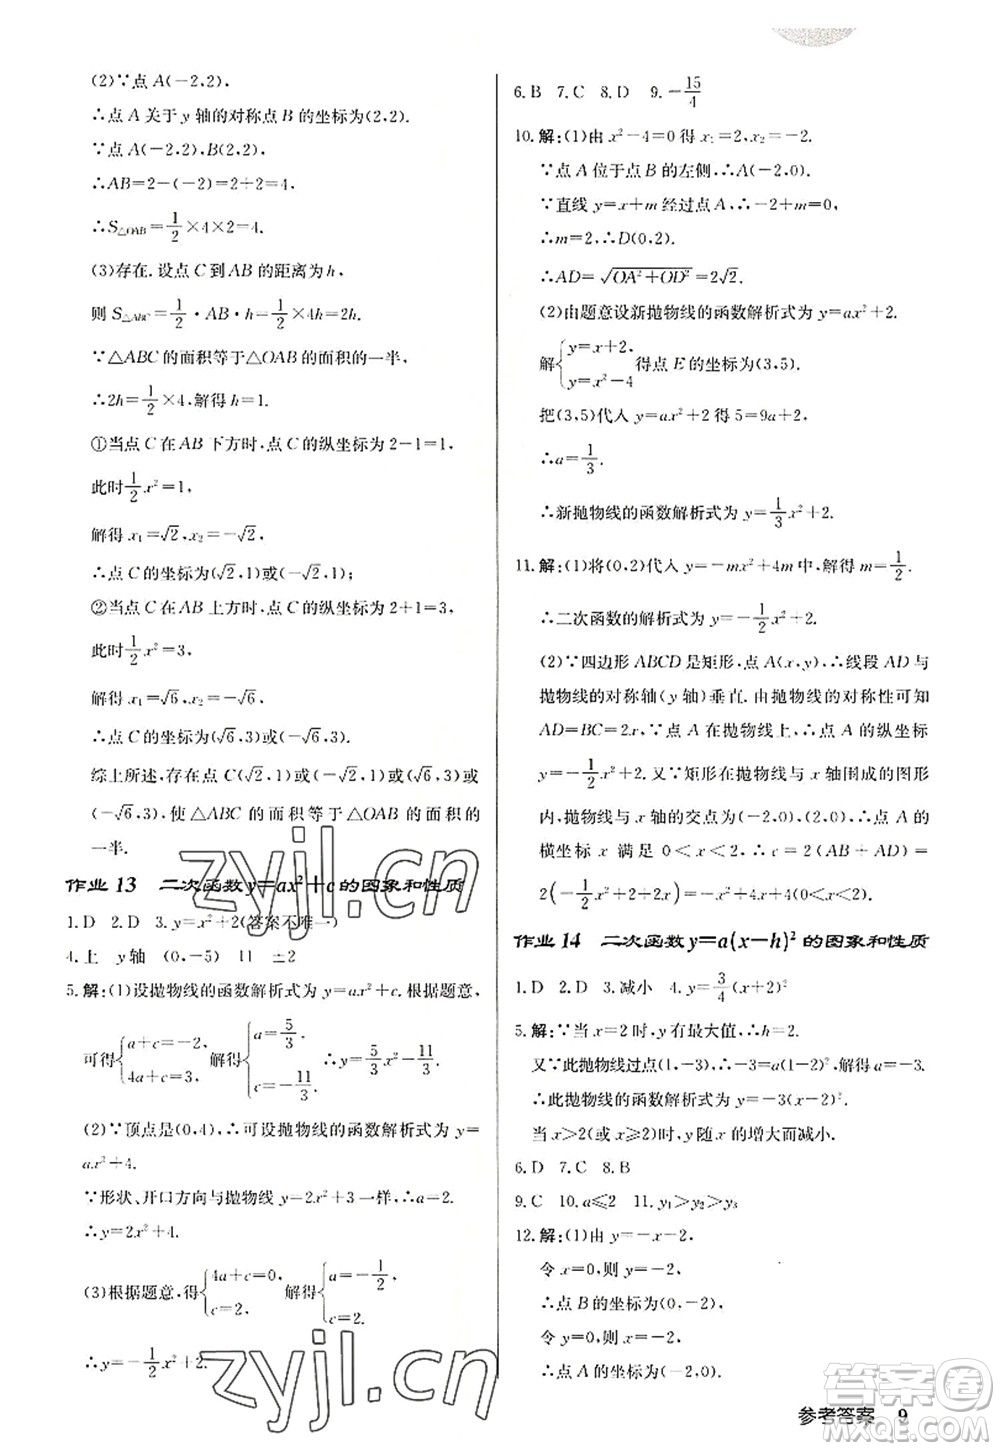 (2)∵点 A(-2,2),
∴点 A 关于 y 轴的对称点 B 的坐标为(2,2).
∵点 A(-2,2),B(2,2).
∴AB=2-(-2)=2+2=4.
∴S△OAB=1/2×4×2=4.
(3)存在.设点 C 到 AB 的距离为 h,
则 S△ABC=1/2·AB·h=1/2×4h=2h.
∵△ABC 的面积等于△OAB 的面积的一半,
∴2h=1/2×4,解得 h=1.
①当点 C 在 AB 下方时,点 C 的纵坐标为 2-1=1,
此时1/2x²=1,
解得 x₁=√2,x₂=-√2,
∴点 C 的坐标为(√2,1)或(-√2,1);
②当点 C 在 AB 上方时,点 C 的纵坐标为 2+1=3,
此时1/2x²=3,
解得 x₁=√6,x₂=-√6,
∴点 C 的坐标为(√6,3)或(-√6,3).
综上所述,存在点 C(√2,1)或(-√2,1)或(√6,3)或
(-√6,3),使 △ABC 的面积等于 △OAB 的面积的
一半.
作业 13 二次函数 y=ax²+c 的图象和性质
1.D 2.D 3.y=x²+2(答案不唯一)
4.上 y轴 (0,-5) 11 ±2
5.解:(1)设抛物线的函数解析式为 y=ax²+c.根据题意,
可得{a+c=-2, 4a+c=3. 解得{a=5/3, c=-11/3. ∴y=5/3x²-11/3.
(2)∵顶点是(0,4),∴可设抛物线的函数解析式为 y=
ax²+4.
∵形状、开口方向与抛物线 y=2x²+3 一样,∴a=2.
∴y=2x²+4.
(3)根据题意,得{4a+c=0, c=2. 解得{a=-1/2, c=2.
∴y=-1/2x²+2.
6.B 7.C 8.D 9.-15/4
10.解:(1)由 x²-4=0 得 x₁=2,x₂=-2.
∵点 A 位于点 B 的左侧,∴A(-2,0).
∵直线 y=x+m 经过点 A,∴-2+m=0,
∴m=2,∴D(0,2).
∴AD=√OA²+OD²=2√2.
(2)由题意设新抛物线的函数解析式为 y=ax²+2.
解{y=x+2, y=x²-4 得点 E 的坐标为(3,5).
把(3,5)代入 y=ax²+2 得 5=9a+2,
∴a=1/3.
∴新抛物线的函数解析式为 y=1/3x²+2.
11.解:(1)将(0,2)代入 y=-mx²+4m 中,解得 m=1/2.
∴二次函数的解析式为 y=-1/2x²+2.
(2)∵四边形 ABCD 是矩形,点 A(x,y),∴线段 AD 与
抛物线的对称轴(y 轴)垂直.由抛物线的对称性可知
AD=BC=2x,∵点 A 在抛物线上,∴点 A 的纵坐标
y=-1/2x²+2.又∵矩形在抛物线与 x 轴围成的图形
内,抛物线与 x 轴的交点为(-2,0),(2,0),∴点 A 的
横坐标 x 满足 0<x<2.∴C=2(AB+AD)=
2(-1/2x²+2+2x)=-x²+4x+4(0<x<2).
作业 14 二次函数 y=a(x-h)² 的图象和性质
1.D 2.D 3.减小 4.y=3/4(x+2)²
5.解:∵当 x=2时,y 有最大值,∴h=2.
又∵此抛物线过点(1,-3),∴-3=a(1-2)²,∴a=-3.
∴此抛物线的函数解析式为 y=-3(x-2)².
当 x>2(或 x≥2)时,y 随 x 的增大而减小.
6.D 7.C 8.B
9.C 10.a≤2 11.y₁>y₂>y₃
12.解:(1)由 y=-x-2,
令 x=0,则 y=-2,
∴点 B 的坐标为(0,-2),
令 y=0,则 x=-2,
∴点 A 的坐标为(-2,0).
参考答案 9
zyjl.cn
zyjl.cn
答案圈
MXQE.COM